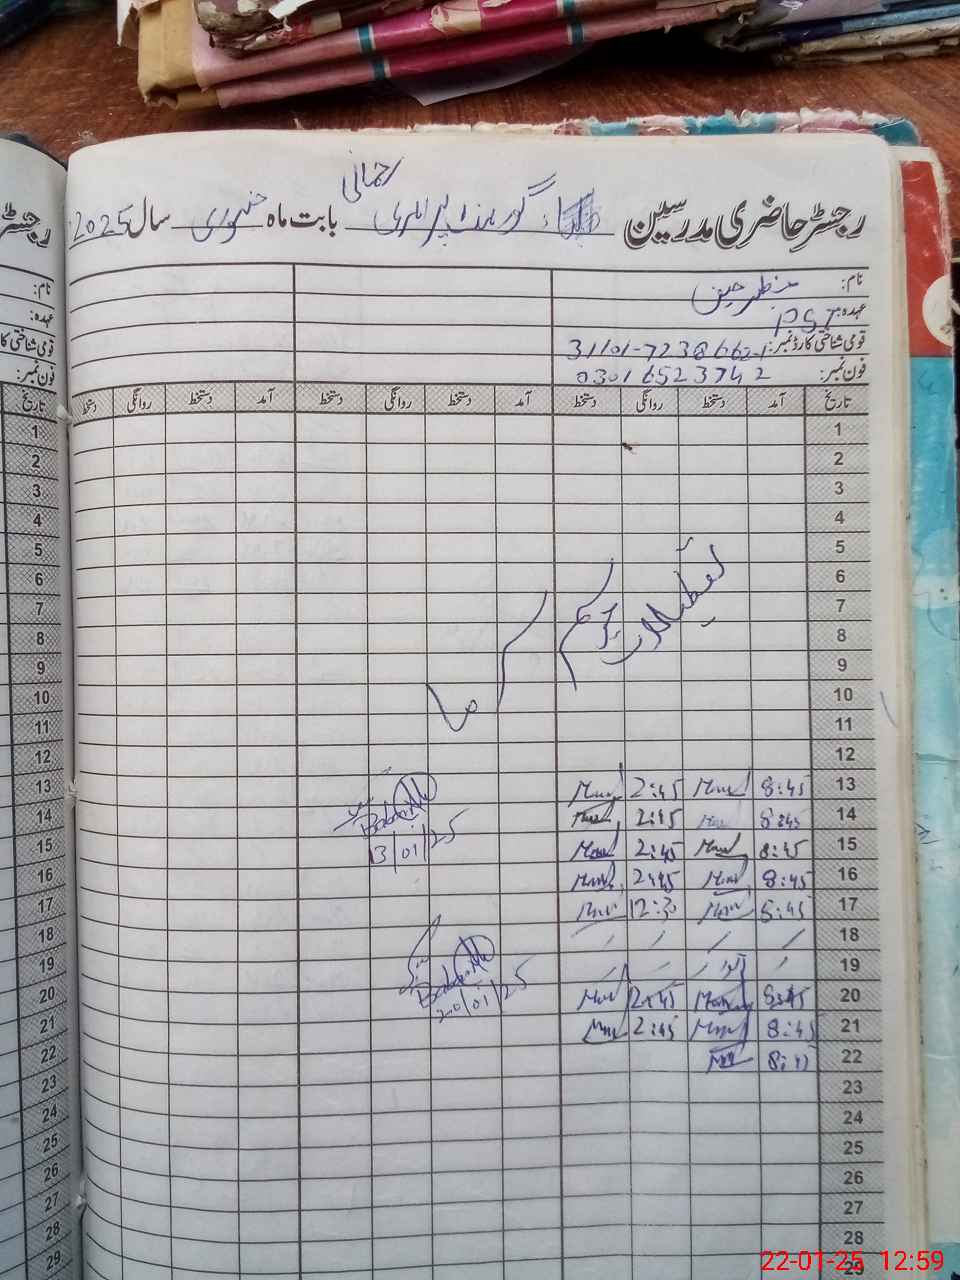 رجسٹر حاضری مدرسین گورنمنٹ پرائمری رحمانی بابت ماہ جنوری سال 2025
نام:
عہدہ: PST
قومی شناختی کارڈ نمبر: 31101-7238662-1
فون نمبر: 03016523742
تاریخ آمد دستخط روانگی دستخط آمد دستخط روانگی دستخط آمد دستخط روانگی دستخط
1
2
3
4
5
6
7
8
9
10
11
12
تعطیلات موسم سرما
13 8:45 2:45
14 8:45 2:45
13/01/25
15 8:45 2:45
16 8:45 2:45
17 8:45 12:30
18
19 اتوار
20 8:45 2:45
20/01/25
21 8:45 2:45
22 8:45
23
24
25
26
27
28
29
رجسٹر
نام:
عہدہ:
قومی شناختی کا
فون نمبر:
تاریخ
1
2
3
4
5
6
7
8
9
10
11
12
13
14
15
16
17
18
19
20
21
22
23
24
25
26
27
28
29
22-01-25 12:59